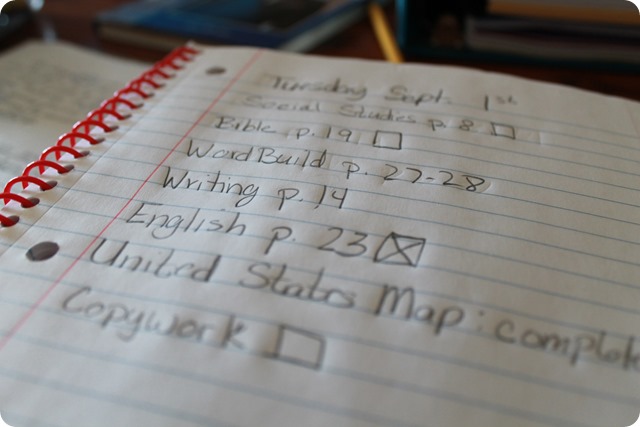 Tuesday Sept. 1st
Social Studies p. 8
Bible p. 19
WordBuild p. 27-28
Writing p. 14
English p. 23
United States Map: complete
Copywork